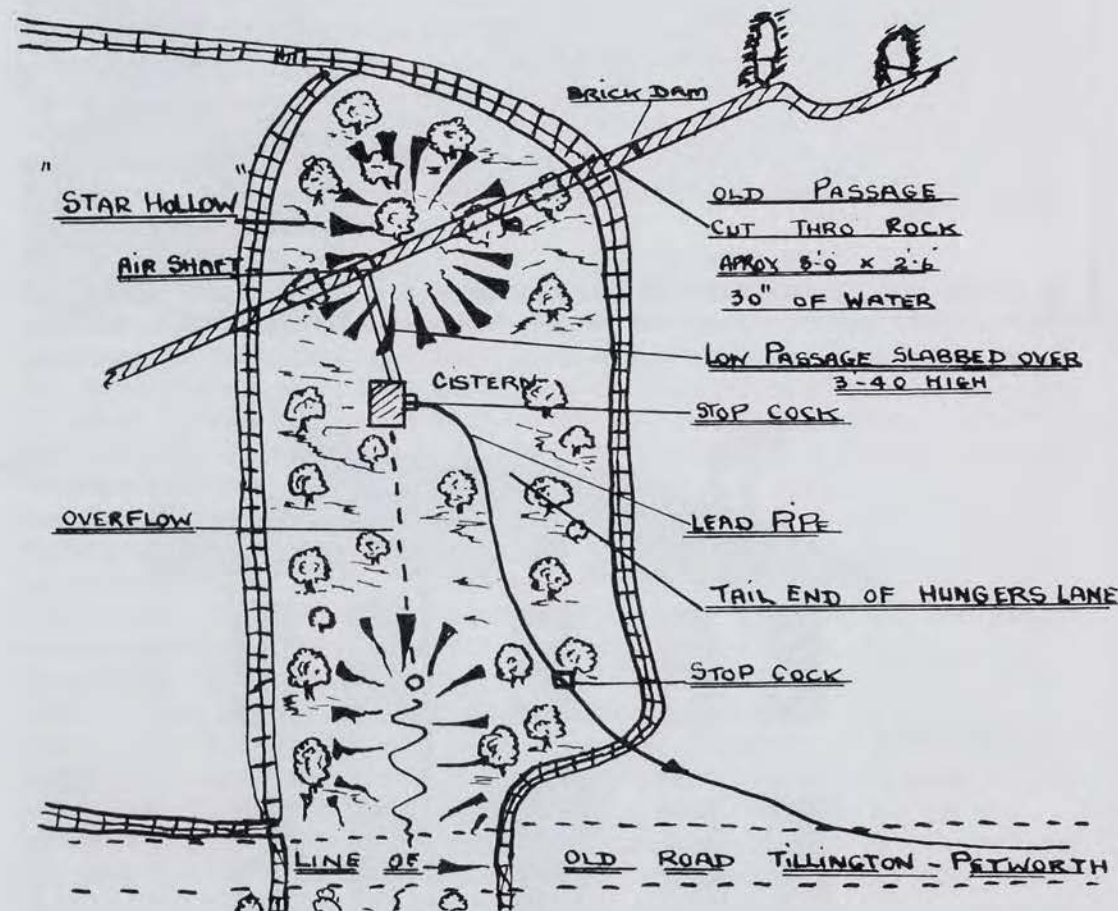 BRICK DAM
"STAR HOLLOW"
OLD PASSAGE
CUT THRO ROCK
AIR SHAFT
30" OF WATER
LOW PASSAGE SLABBED OVER
3-40 HIGH
CISTERN
STOP COCK
OVERFLOW
LEAD PIPE
TAIL END OF HUNGERS LANE
STOP COCK
LINE OF OLD ROAD TILLINGTON - PETWORTH